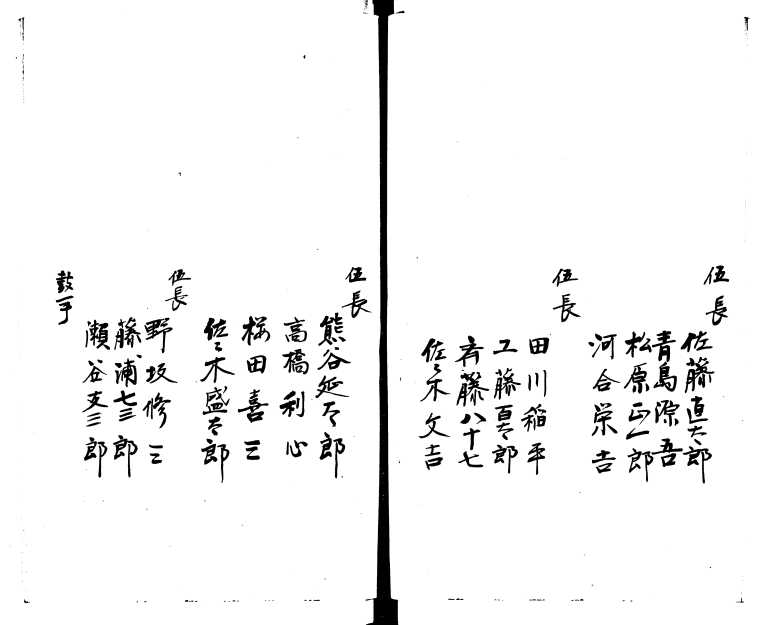 伍長
佐藤直太郎
青島源吾
松原正一郎
河合栄吉
伍長
田川稲平
工藤直太郎
斉藤八十七
佐々木文吉
伍長
熊谷延太郎
高橋利心
桜田喜三
佐々木盛太郎
伍長
野坂修三
藤浦七三郎
瀬谷支三郎
鼓手